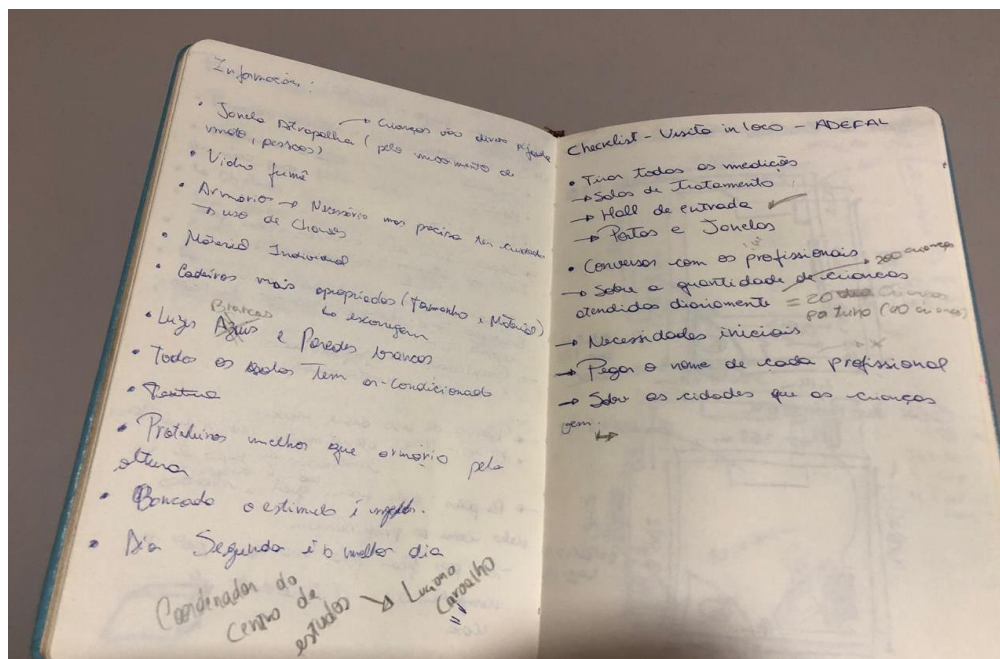 Informações:
• Janela Atrapalha → Crianças vão
(pelo movimento de
vento, pessoas)
• Vidro fumê
• Armário → Necessário mas precisa ter cuidado
→ uso de Chaves
• Material Individual
• Cadeiras mais apropriadas (Tamanho e Material)
↳ escorregam
Brancas
• Luzes Azuis e Paredes brancas
• Todas as salas tem ar-condicionado
• Textura
• Prateleiras melhor que armário pela
altura
• Bancada o estimulo é
• Dia Segunda é o melhor dia
Coordenador do
Centro de
estudos → Luciano
Carvalho
Checklist - Visita in loco - ADEFAL
• Tirar todas as medições
→ Salas de Tratamento
→ Hall de entrada
→ Portas e Janelas
• Conversar com os profissionais
→ Sobre a quantidade de crianças → 200 crianças
atendidas diariamente = 20 crianças
por turno (40 crianças)
→ Necessidades iniciais
→ Pegar o nome de cada profissional
→ Saber as cidades que as crianças
vem.